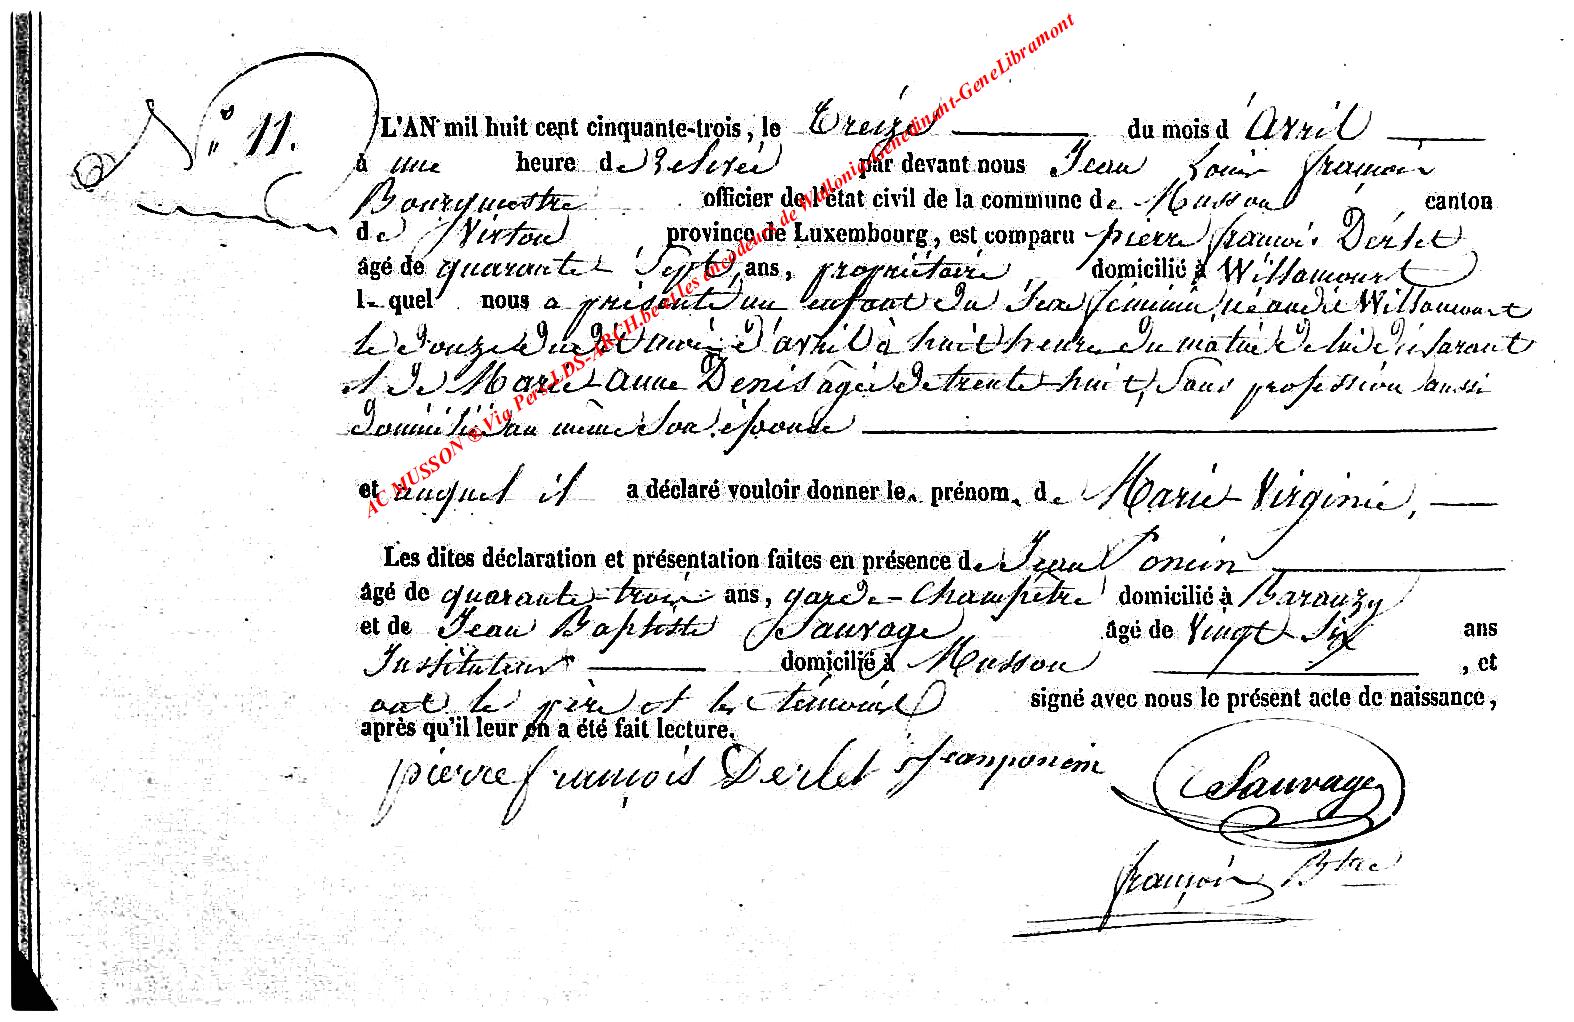 N° 11.
L'AN mil huit cent cinquante-trois, le treize du mois d'avril
à une heure de relevée par devant nous Jean Louis françois
Bourgmestre officier de l'état civil de la commune de Musson canton
de Virton province de Luxembourg, est comparu pierre françois Derlet
âgé de quarante Sept ans, propriétaire domicilié à Willancourt
lequel nous a présenté un enfant du Sexe féminin, né audit Willancourt
le douze dudit mois d'avril à huit heures du matin de lui déclarant
et de Marie Anne Denis âgée de trente huit, Sans profession aussi
domiciliée au même Son épouse
et auquel il a déclaré vouloir donner le prénom de Marie Virginie,
Les dites déclaration et présentation faites en présence de Jean Poncin
âgé de quarante trois ans, garde-Champêtre domicilié à Baranzy
et de Jean Baptiste Sauvage âgé de Vingt Six ans
Instituteur domicilié à Musson , et
ont le père et les témoins signé avec nous le présent acte de naissance,
après qu'il leur en a été fait lecture.
pierre françois Derlet jeanponcin Sauvage
françois Btre
AC MUSSON ® Via Pers LDS-ARCH.be et les encodeurs de Wallonia-Genedinant-GeneLibramont